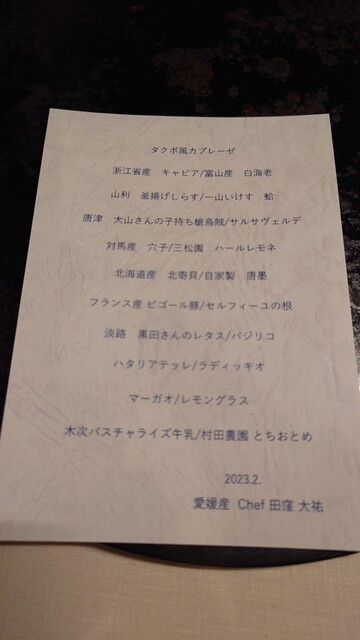 タクボ風カプレーゼ
浙江省産 キャビア/富山産 白海老
山利 釜揚げしらす/一山いけす 蛤
唐津 大山さんの子持ち槍烏賊/サルサヴェルデ
対馬産 穴子/三松園 ハールレモネ
北海道産 北寄貝/自家製 唐墨
フランス産 ビゴール豚/セルフィーユの根
淡路 黒田さんのレタス/バジリコ
ハタリアテッレ/ラディッキオ
マーガオ/レモングラス
木次パスチャライズ牛乳/村田農園 とちおとめ
2023.2.
愛媛産 Chef 田窪 大祐